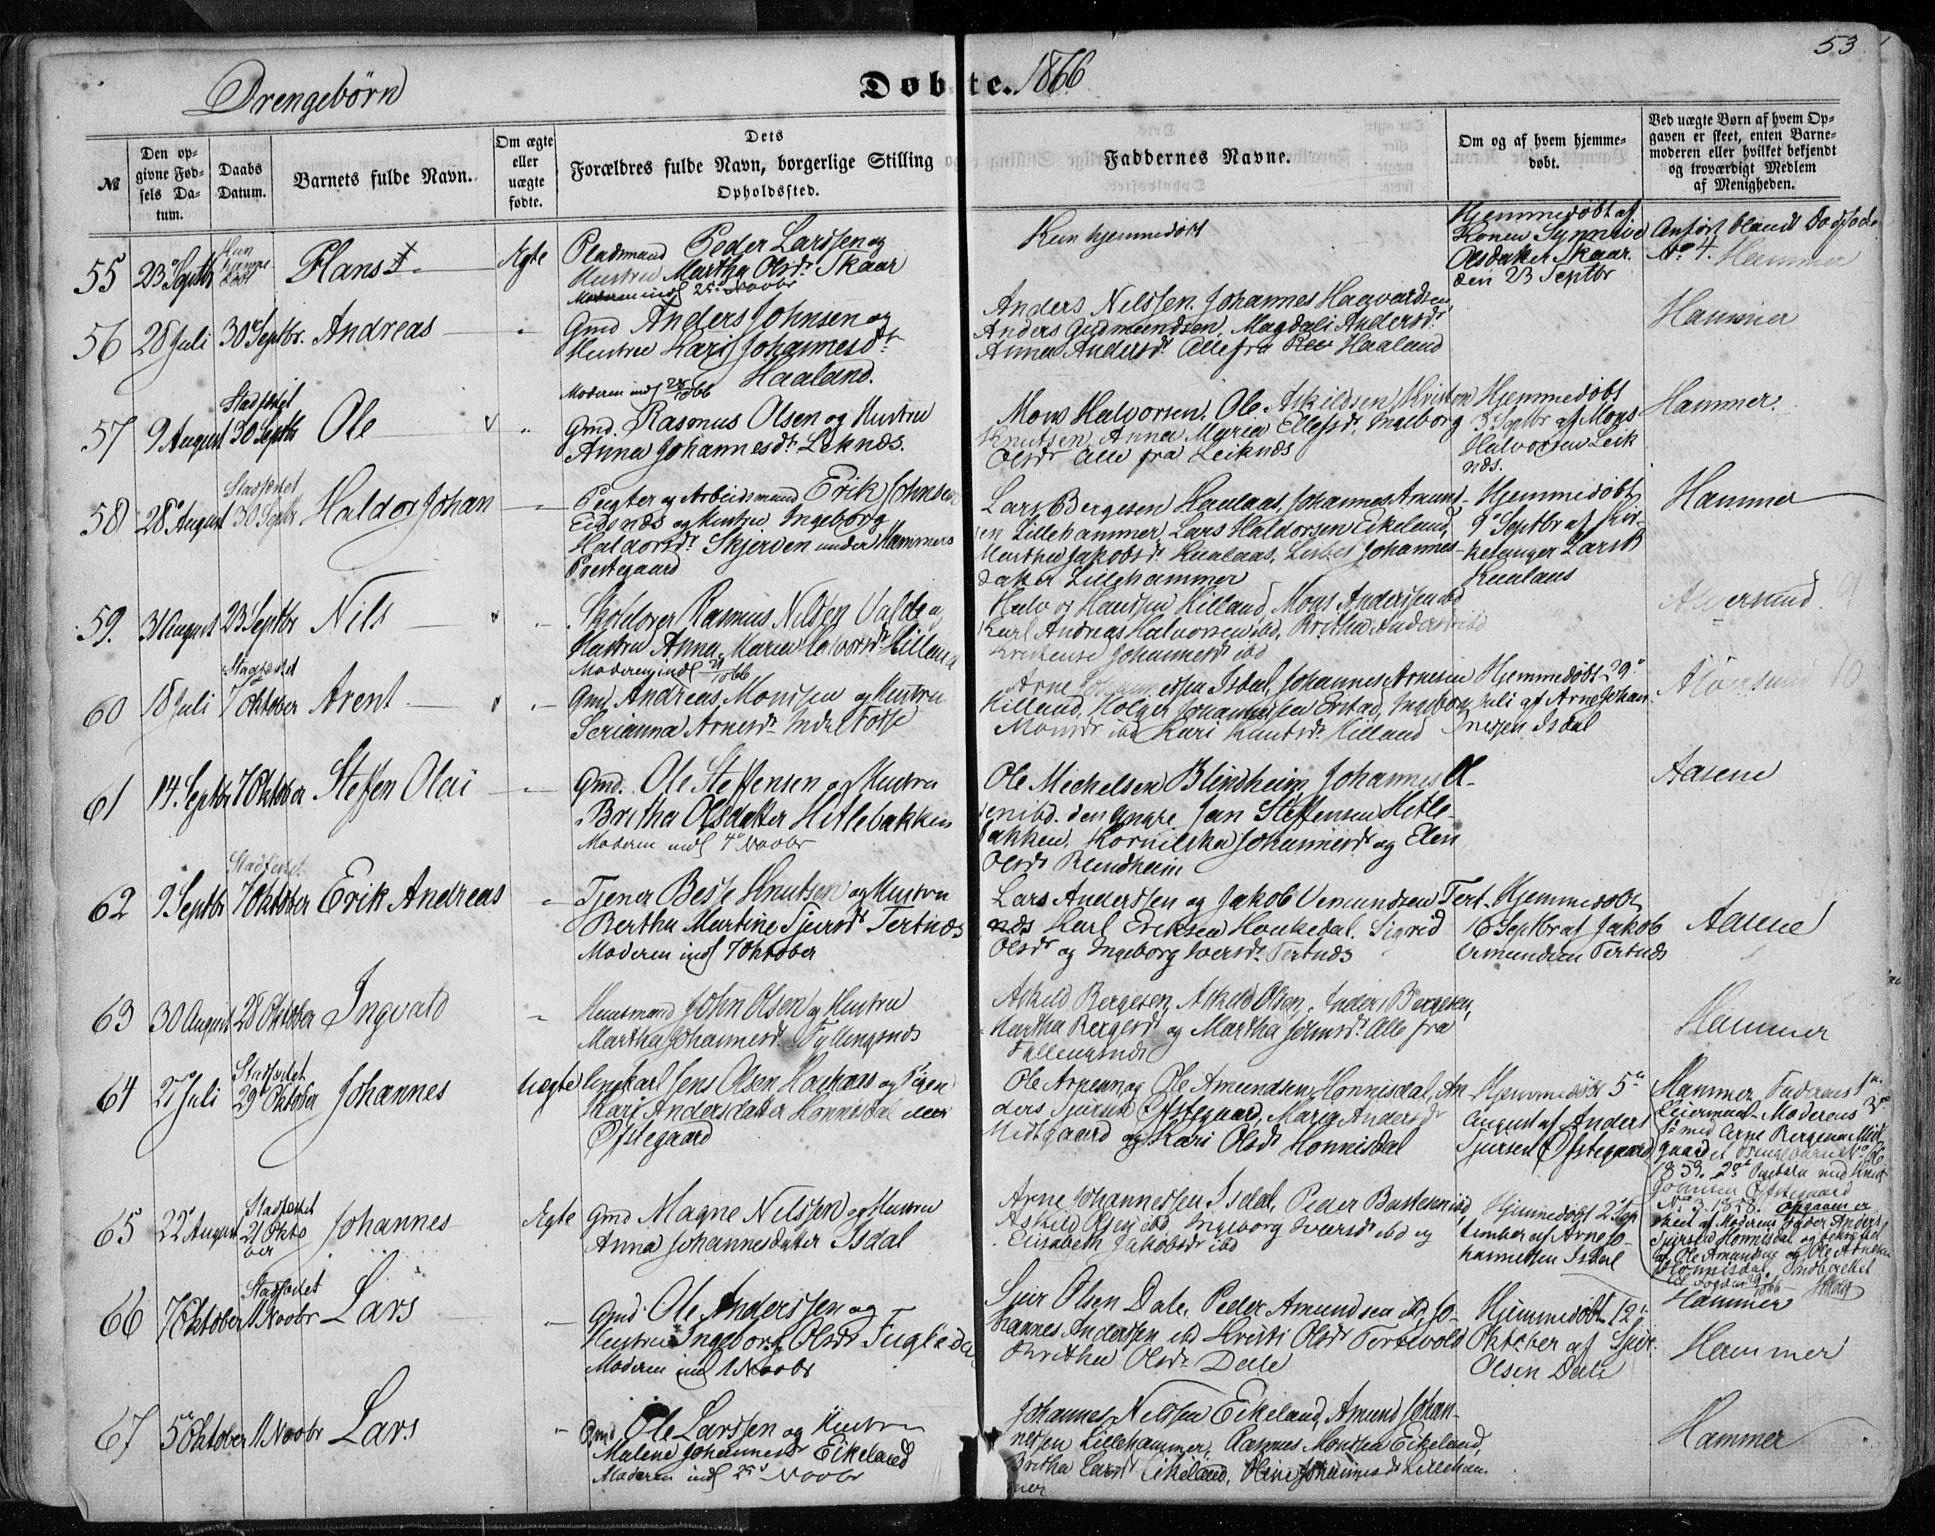 53
Drengebørn
Døbte. 1866
№
Den op-
givne Fød-
sels Da-
tum.
Daabs
Datum.
Barnets fulde Navn.
Om ægte
eller
uægte
fødte.
Dets
Forældres fulde Navn, borgerlige Stilling
Opholdssted.
Faddernes Navne.
Om og af hvem hjemme-
døbt.
Ved uægte Børn af hvem Op-
gaven er skeet, enten Barne-
moderen eller hvilket bekjendt
og troværdigt Medlem
af Menigheden.
55
23 Septbr
Kun
hjemme
døbt
Hans
Ægte
Pladsmand Peder Larssen og
Hustru Martha Olsdr Skaar
Moderen indl 25 Novbr
Kun hjemmedøbt
Hjemmedøbt af
Konen Synneve
Olsdatter Skaar
den 23 Septbr
Anført blandt Dødfødte
No 4. Hammer
56
28 Juli
30 Septbr.
Andreas
Gmd Anders Johnsen og
Hustru Kari Johannesdr
Haaland.
Anders Nilssen, Johannes Haavardsen
Anders Gudmundsen, Magdali Andersdr
Anna Andersdr Alle fra Haaland
Hammer
57
9 August
Stadfæstet
30 Septbr
Ole
Moderen indl 1866
Gmd. Rasmus Olsen og Hustru
Anna Johannesdr Leknæs.
Mons Halvorsen, Ole Askildsen, Kristen
Knutsen, Anna Maria Ellefsdr, Ingeborg
Olsdr Alle fra Leiknæs
Hjemmedøbt
3 Septbr af Mons
Halvorsen Leik
næs.
Hammer.
58
28 August
Stadfæstet
30 Septbr
Haldor Johan
Pægter og Arbeidsmand Erik Johnsen
Eidsnæs og Hustru Ingeborg
Haldorsdr Skjerden under Hammers
Prestegaard
Lars Bergesen Haalaas, Johannes Amund-
sen Lillehammer, Lars Haldorsen Eikeland,
Martha Jakobsdr Haalaas, Lisbet Johannes-
datter Lillehammer
Hjemmedøbt
9 Septbr af Kir-
kesanger Lars B
Haalaas
Hammer
59.
31 August
23 Septbr
Nils
Skolelærer Rasmus Nilsen Valde og
Hustru Anna Maria Halvorsdr Hilland
Moderen indl 1866
Halvor Hansen Hilland, Mons Anderssen ibd
Karl Andreas Halvorsen ibd, Britha Andersdr ibd
Johannesdr ibd
Alversund 9
60
18 Juli
Stadfæstet
7 Oktober
Arent
Gmd Andreas Monssen og Hustru
Serianna Arnesdr Indre Fosse
Arne Johannessen Isdal, Johannes Arnesen
Hilland, Holger Johannessen Erstad, Ingeborg
Monsdr ibd Kari Knutsdr Hilland
Hjemmedøbt 29
Juli af Arne Johan-
nessen Isdal
Alversund 10
61
14 Septbr
7 Oktober
Steffen Olai
Gmd. Ole Steffensen og Hustru
Britha Olsdatter Hitlebakken
Moderen indl 4 Novbr
Ole Michelsen Blindheim, Johannes Ol-
sen ibd. den yngre, Jan Steffensen Hitle-
bakken, Kornilska Johannesdr og Elen
Olsdr Blindheim
Aasene
62
9 Septbr
Stadfæstet
7 Oktober
Erik Andreas
Tjener Besse Knutsen og Hustru
Bertha Martine Sjursdr Tertnæs
Moderen indl 7 Oktober
Lars Anderssen og Jakob Vemundsen Tert-
næs Karl Eriksen Haukedal, Sigrid
Olsdr og Ingeborg Iversdr Tertnæs
Hjemmedøbt
16 Septbr af Jakob
Vemundsen Tertnæs
Aasene
63
30 August
28 Oktober
Ingvald
Huusmand John Olsen og Hustru
Martha Johannesdr Fyllingsnæs
Askild Bergesen, Askild Olsen, Anders Bergesen,
Martha Bergesdr og Martha Johnsdr Alle fra
Fyllingsnæs
Hammer
64
27 Juli
Stadfæstet
29 Oktober
Johannes
Uægte
Ungkarl Jens Olsen Haukaas og Pigen
Kari Andersdatter Honnisdal
Øfstegaard
Ole Arnesen og Ole Amundsen Honnisdal, An-
ders Sjursen Øfstegaard, Maria Andersdr
Midtgaard og Kari Olsdr Honnisdal
Hjemmedøbt 5
August af Anders
Sjursen Øfstegaard
Hammer Faderens 1ste
Leiermaal. Moderens 3die
1ste med Arne Bergesen Midt
gaard
1853. 2det
Johannes Øfstegaard
No 3 1858. Opgaven er
skeet af Moderens Fader Anders
Sjursen Honnisdal og bekræftet
af Ole Amundsen og Ole Arnesen
Honnisdal. Indberettet
65
22 August
Stadfæstet
21 Okto
ber
Johannes
Ægte
Gmd Magne Nilssen og Hustru
Anna Johannesdatter Isdal
Arne Johannessen Isdal, Peder ibd,
Askild Olsen ibd, Ingeborg Iversdr ibd og
Elisabeth Jakobsdr ibd
Hjemmedøbt 2 Sep
tember af Arne Jo-
hannessen Isdal
Hammer
66
7 Oktober
Stadfæstet
1 Novbr
Lars
Gmd Ole Anderssen og
Hustru Ingeborg Olsdr Fugledal
Moderen indl 1 Novbr
Sjur Olsen Dale, Peder Amundsen ibd, Jo-
hannes Anderssen ibd Kristi Olsdr Torvevold
Britha Olsdr Dale
Hjemmedøbt 12
Oktober af Sjur
Olsen Dale
Hammer
67
5 Oktober
1 Novbr
Lars
Gmd Ole Larssen og Hustru
Malene Johannesdr Eikeland
Moderen indl 25 Novbr
Johannes Nilssen Eikeland, Amund Johan-
nessen Lillehammer, Rasmus Monssen Eikeland,
Britha Larsdr Eikeland, Oline Johannesdr Lilleham
mer
Hammer